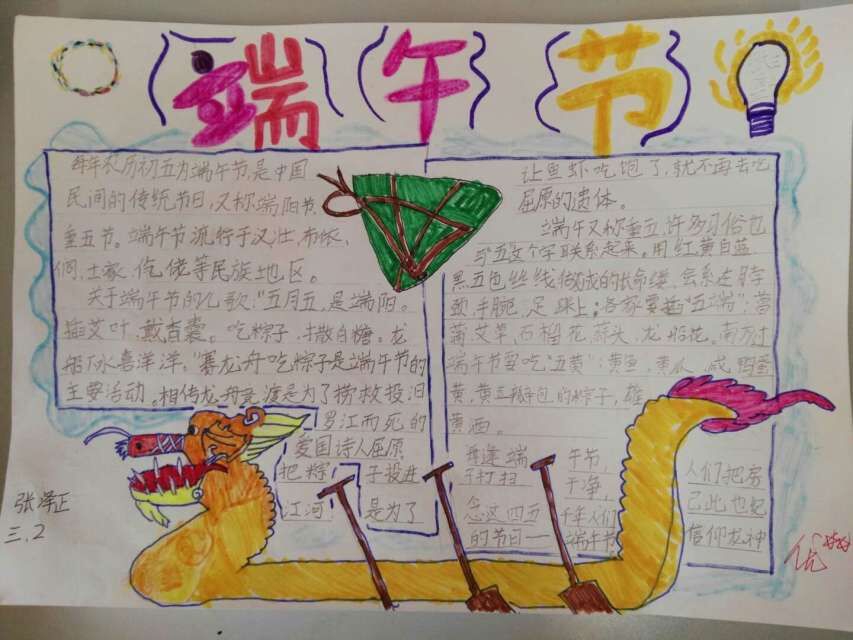 端午节
每年农历初五为端午节,是中国
民间的传统节日,又称端阳节、
重五节。端午节流行于汉、壮、布依、
侗、土家、仡佬等民族地区。
关于端午节的儿歌:“五月五,是端阳。
插艾叶,戴香囊。吃粽子,撒白糖。龙
船下水喜洋洋。”赛龙舟吃粽子是端午节的
主要活动。相传龙舟竞渡是为了捞救投汨
罗江而死的
爱国诗人屈原,
把粽子投进
江河是为了
让鱼虾吃饱了,就不再去吃
屈原的遗体。
端午又称重五,许多习俗也
与“五”这个字联系起来。用红黄白蓝
黑五色丝线做成的长命缕,会系在脖
颈、手腕、足踝上;各家要插“五端”:菖
蒲、艾草、石榴花、蒜头、龙船花。南方过
端午节要吃“五黄”:黄鱼、黄瓜、咸鸭蛋
黄、黄豆瓣包的粽子、雄
黄酒。
每逢端午节,人们把房
子打扫干净,己此也纪
念这四五千年人们信仰龙神
的节日一端午节
张泽正
三.2
优